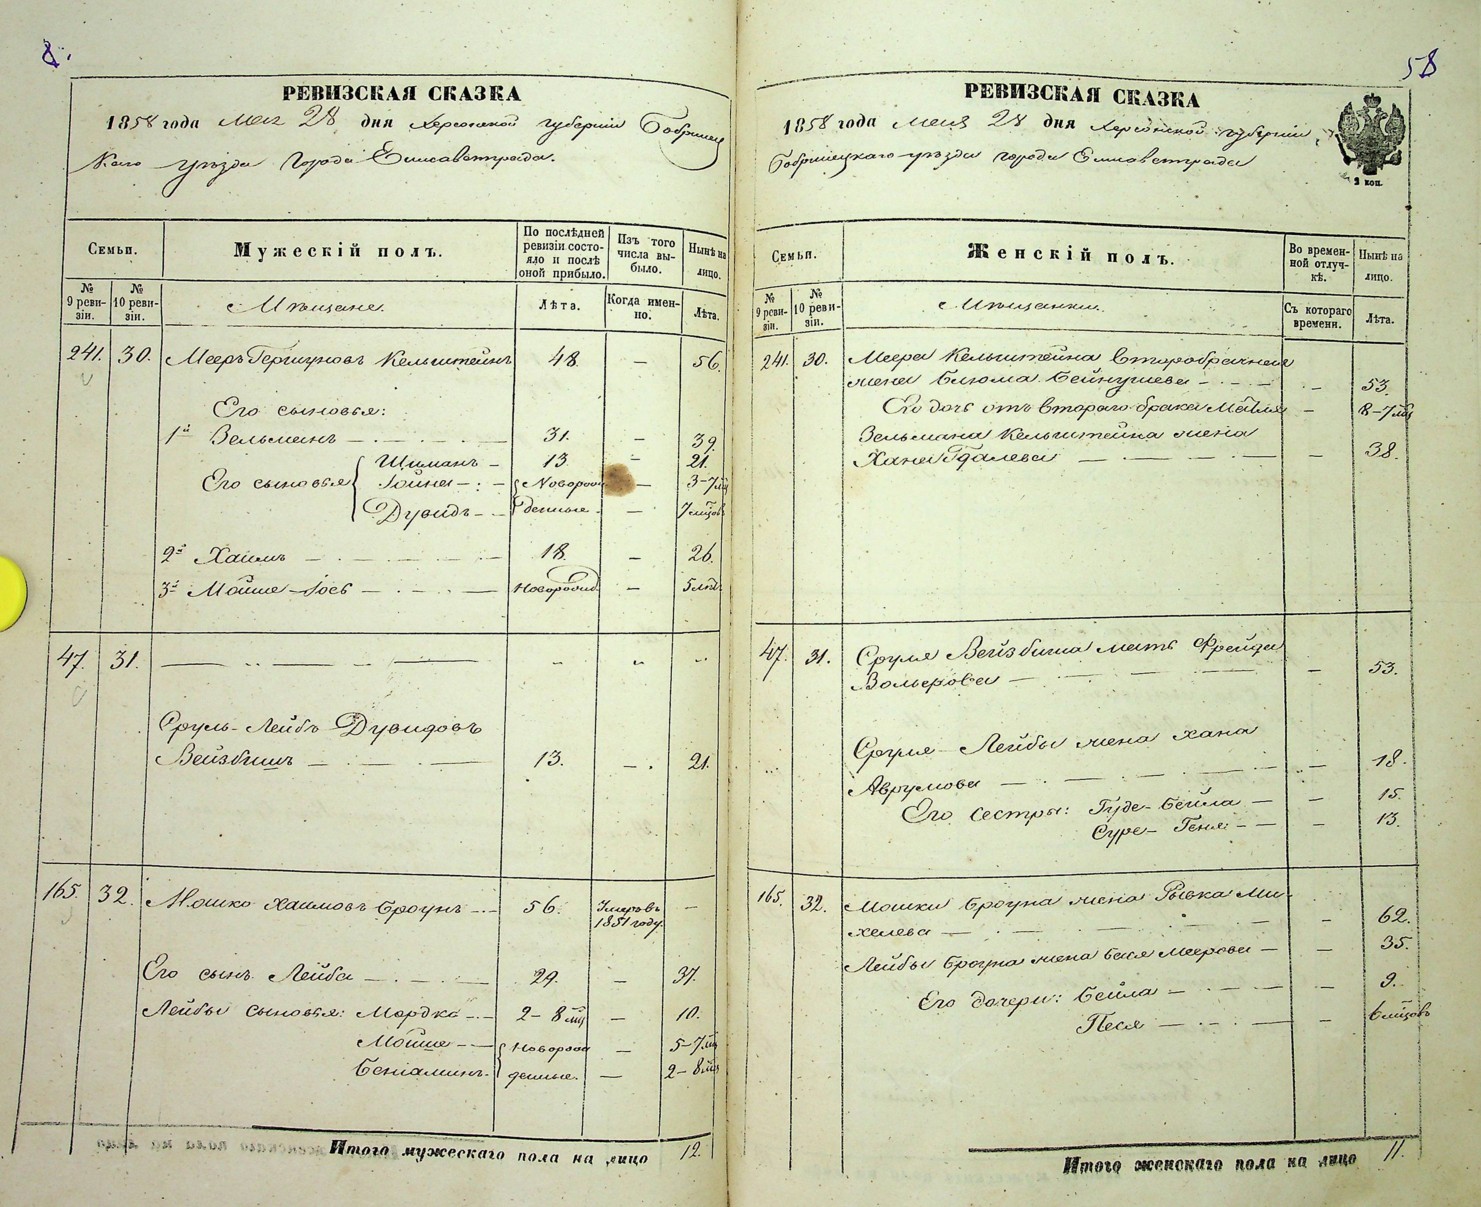 8.
РЕВИЗСКАЯ СКАЗКА
1858 года Мая 28 дня Херсонской губернии Бобринец
каго уѣзда города Елисаветграда.
Семьи.
Мужескій полъ.
По послѣдней ревизіи состояло и послѣ оной прибыло.
Изъ того числа выбыло.
Нынѣ на лицо.
№ 9 ревизіи.
№ 10 ревизіи.
Мѣщане.
Лѣта.
Когда именно.
Лѣта.
241. 30. Мееръ Гершуновъ Кельштейнъ 48. — 56.
Его сыновья:
1й Зельманъ — 31. — 39.
Шиманъ — 13. — 21.
Его сыновья Іойна — Новорож — 3-7 мц
Дувидъ — денные — 7 мцовъ
2й Хаимъ — 18. — 26.
3й Мойше-Іось — Новорожд. — 5 лѣт.
47. 31.
Сруль-Лейбъ Дувидовъ
Вейзбишъ — 13. — 21.
165. 32. Мошко Хаимовъ Броунъ — 56. Умеръ въ 1851 году. —
Его сынъ Лейба — 29. — 37.
Лейбы сыновья: Мордко — 2-8 мц — 10.
Мойше — Новорож — 5-7 мц
Беніаминъ — денные. — 2-8 мц
Итого мужескаго пола на лицо 12.
58
РЕВИЗСКАЯ СКАЗКА
1858 года Мая 28 дня Херсонской губерніи,
Бобринецкаго уѣзда города Елисаветграда
2 коп.
Семьи.
Женскій полъ.
Во временной отлучкѣ.
Нынѣ на лицо.
№ 9 ревизіи.
№ 10 ревизіи.
Мѣщанки.
Съ котораго времени.
Лѣта.
241. 30. Меера Кельштейна второбрачная
жена Блюма Бейнушева — — 53.
Его дочь отъ втораго брака — 8-7 мц
Зельмана Кельштейна жена
Хана Гдалева — — 38.
47. 31. Сруля Вейзбиша мать Фрейда
Вольфова — — 53.
Сруля-Лейбы жена Хана
Аврумова — — 18.
Его сестры: Гуде-Бейла — — 15.
Суре-Геня — — 13.
165. 32. Мошки Броуна жена Рывка Ми-
хелева — — 62.
Лейбы Броуна жена Бася Меерова — — 35.
Его дочери: Бейла — — 9.
Песя — — 6 мцовъ
Итого женскаго пола на лицо 11.